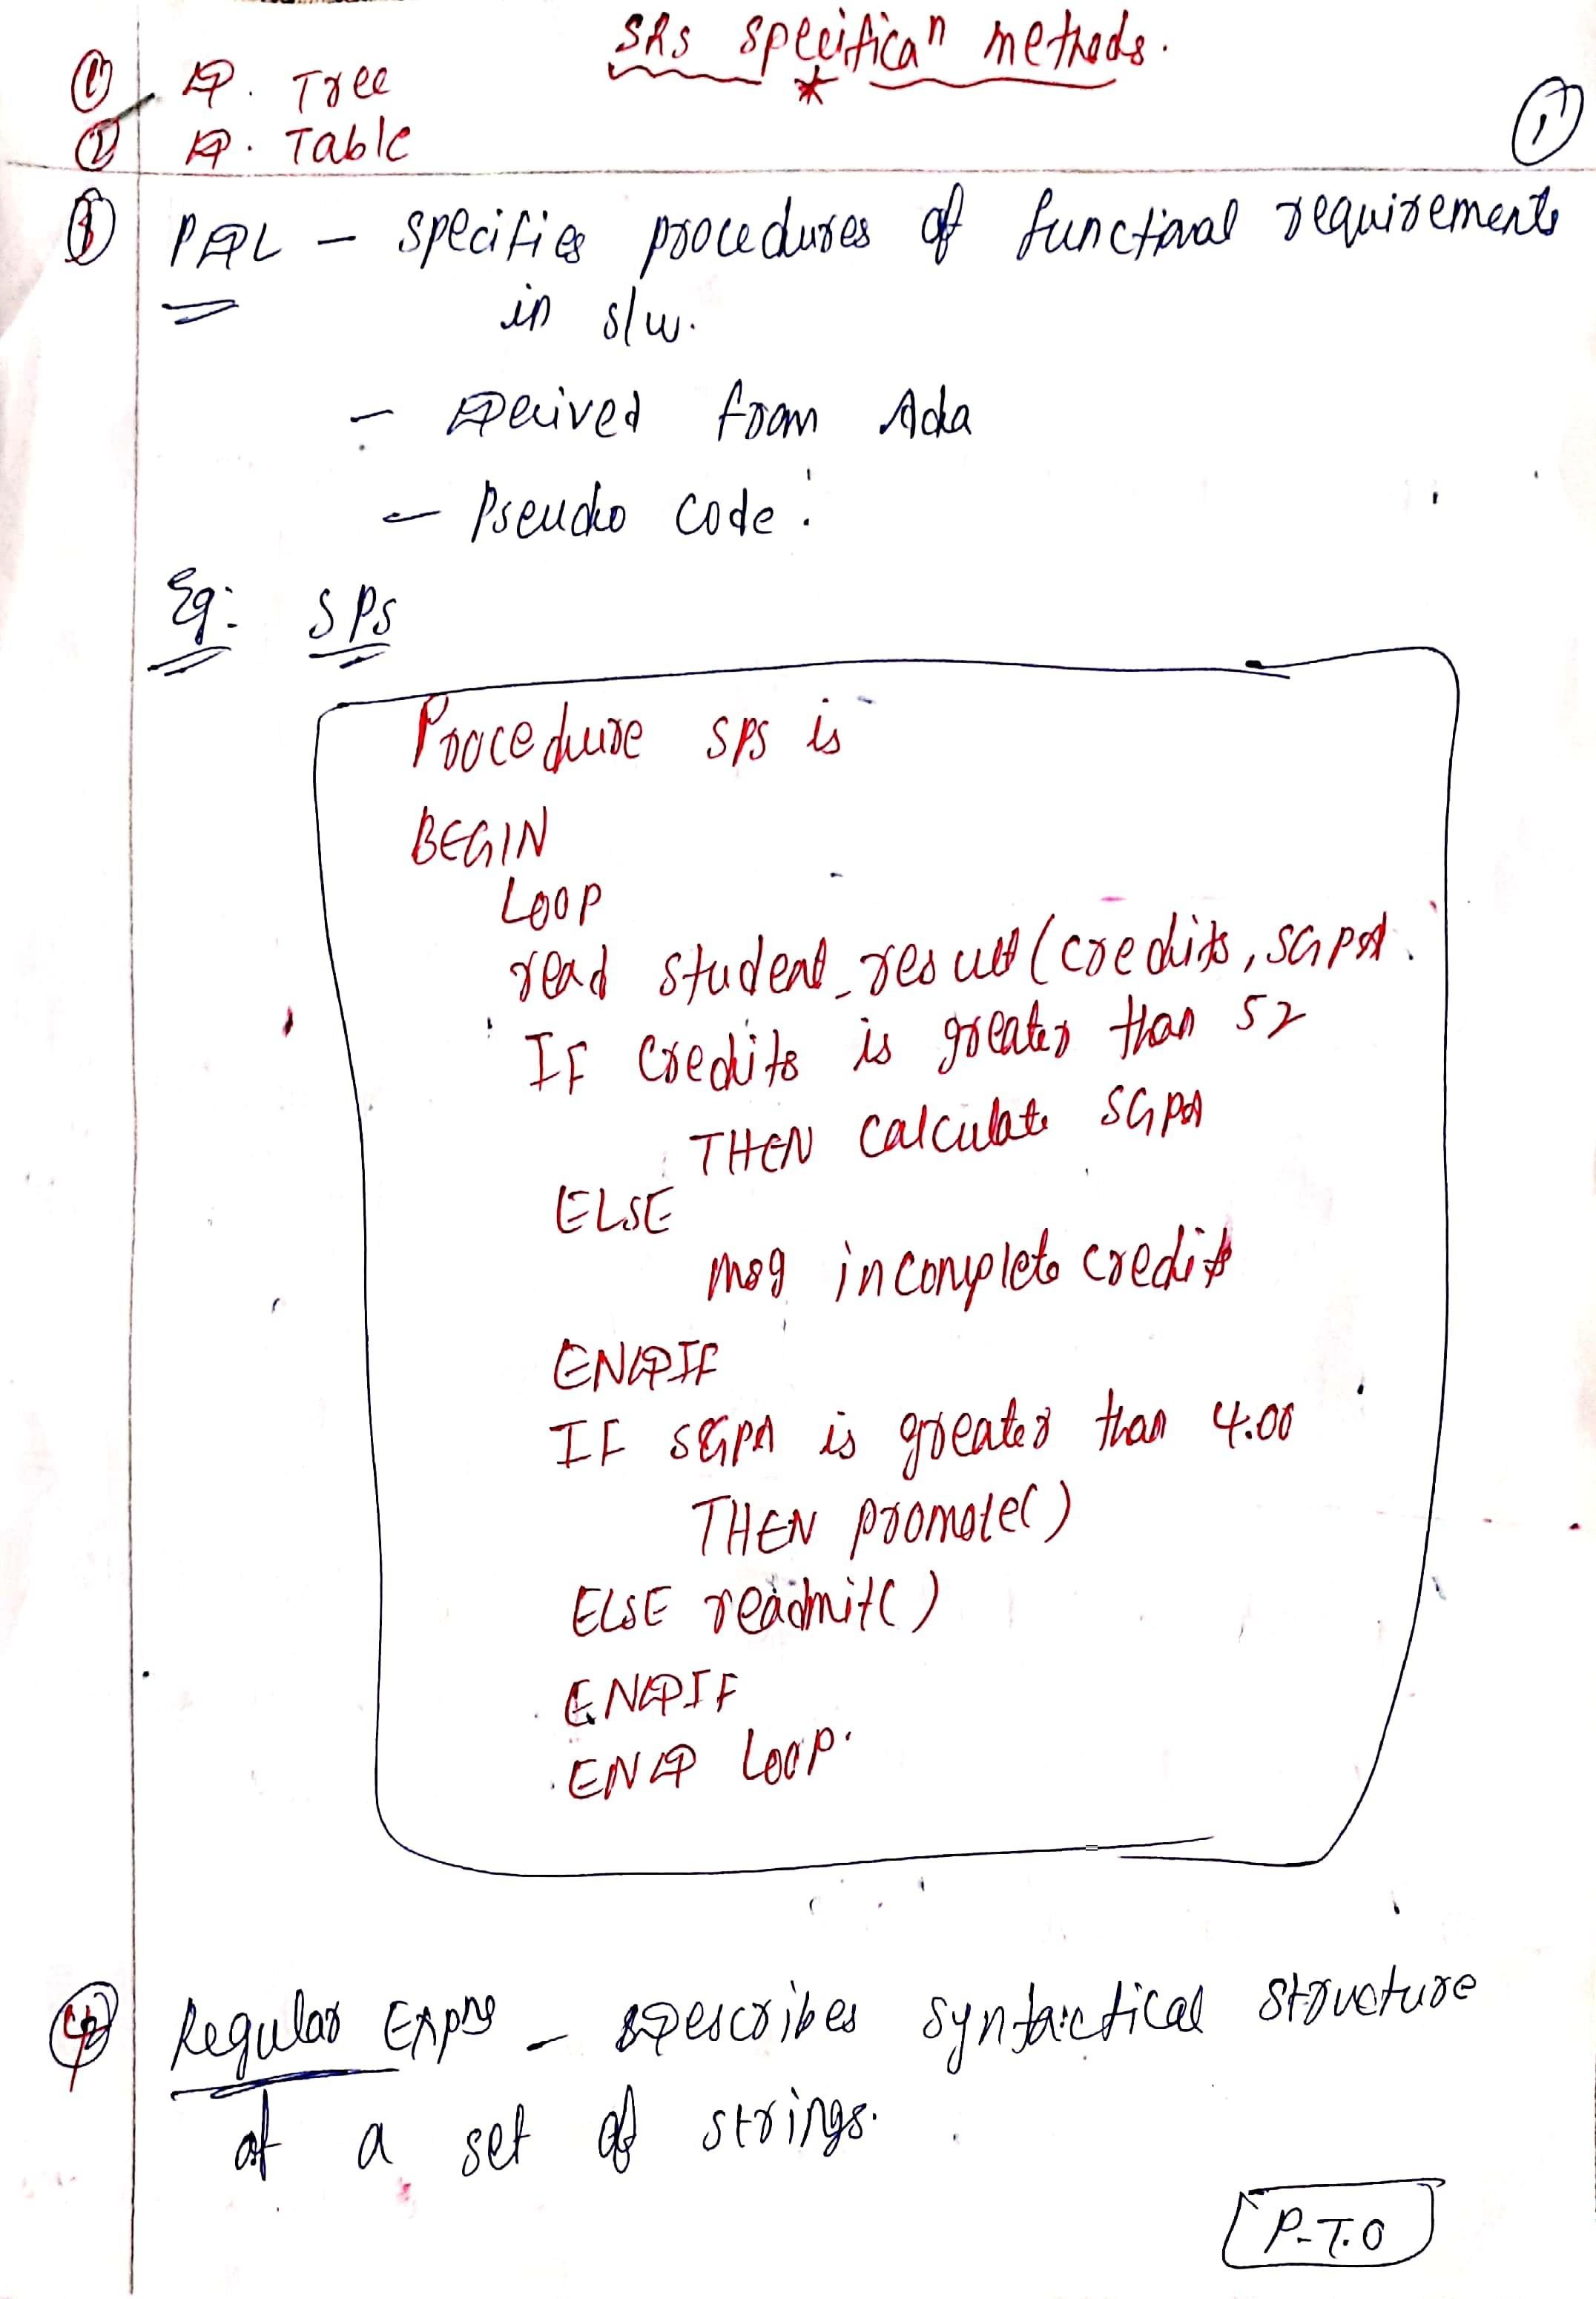 SRS specificaⁿ methods.
① D. Tree
② D. Table
①
③ PDL – specifies procedures of functional requirements
in s/w.
– Derived from Ada
– Pseudo code :
Eg: SPS
Procedure SPS is
BEGIN
LOOP
read student_result (credits, SGPA.
IF Credits is greater than 52
THEN calculate SGPA
ELSE
msg incomplete credits
ENDIF
IF SGPA is greater than 4.00
THEN promote()
ELSE readmit()
ENDIF
END LOOP.
④ Regular Expns – Describes syntactical structure
of a set of strings.
P.T.O